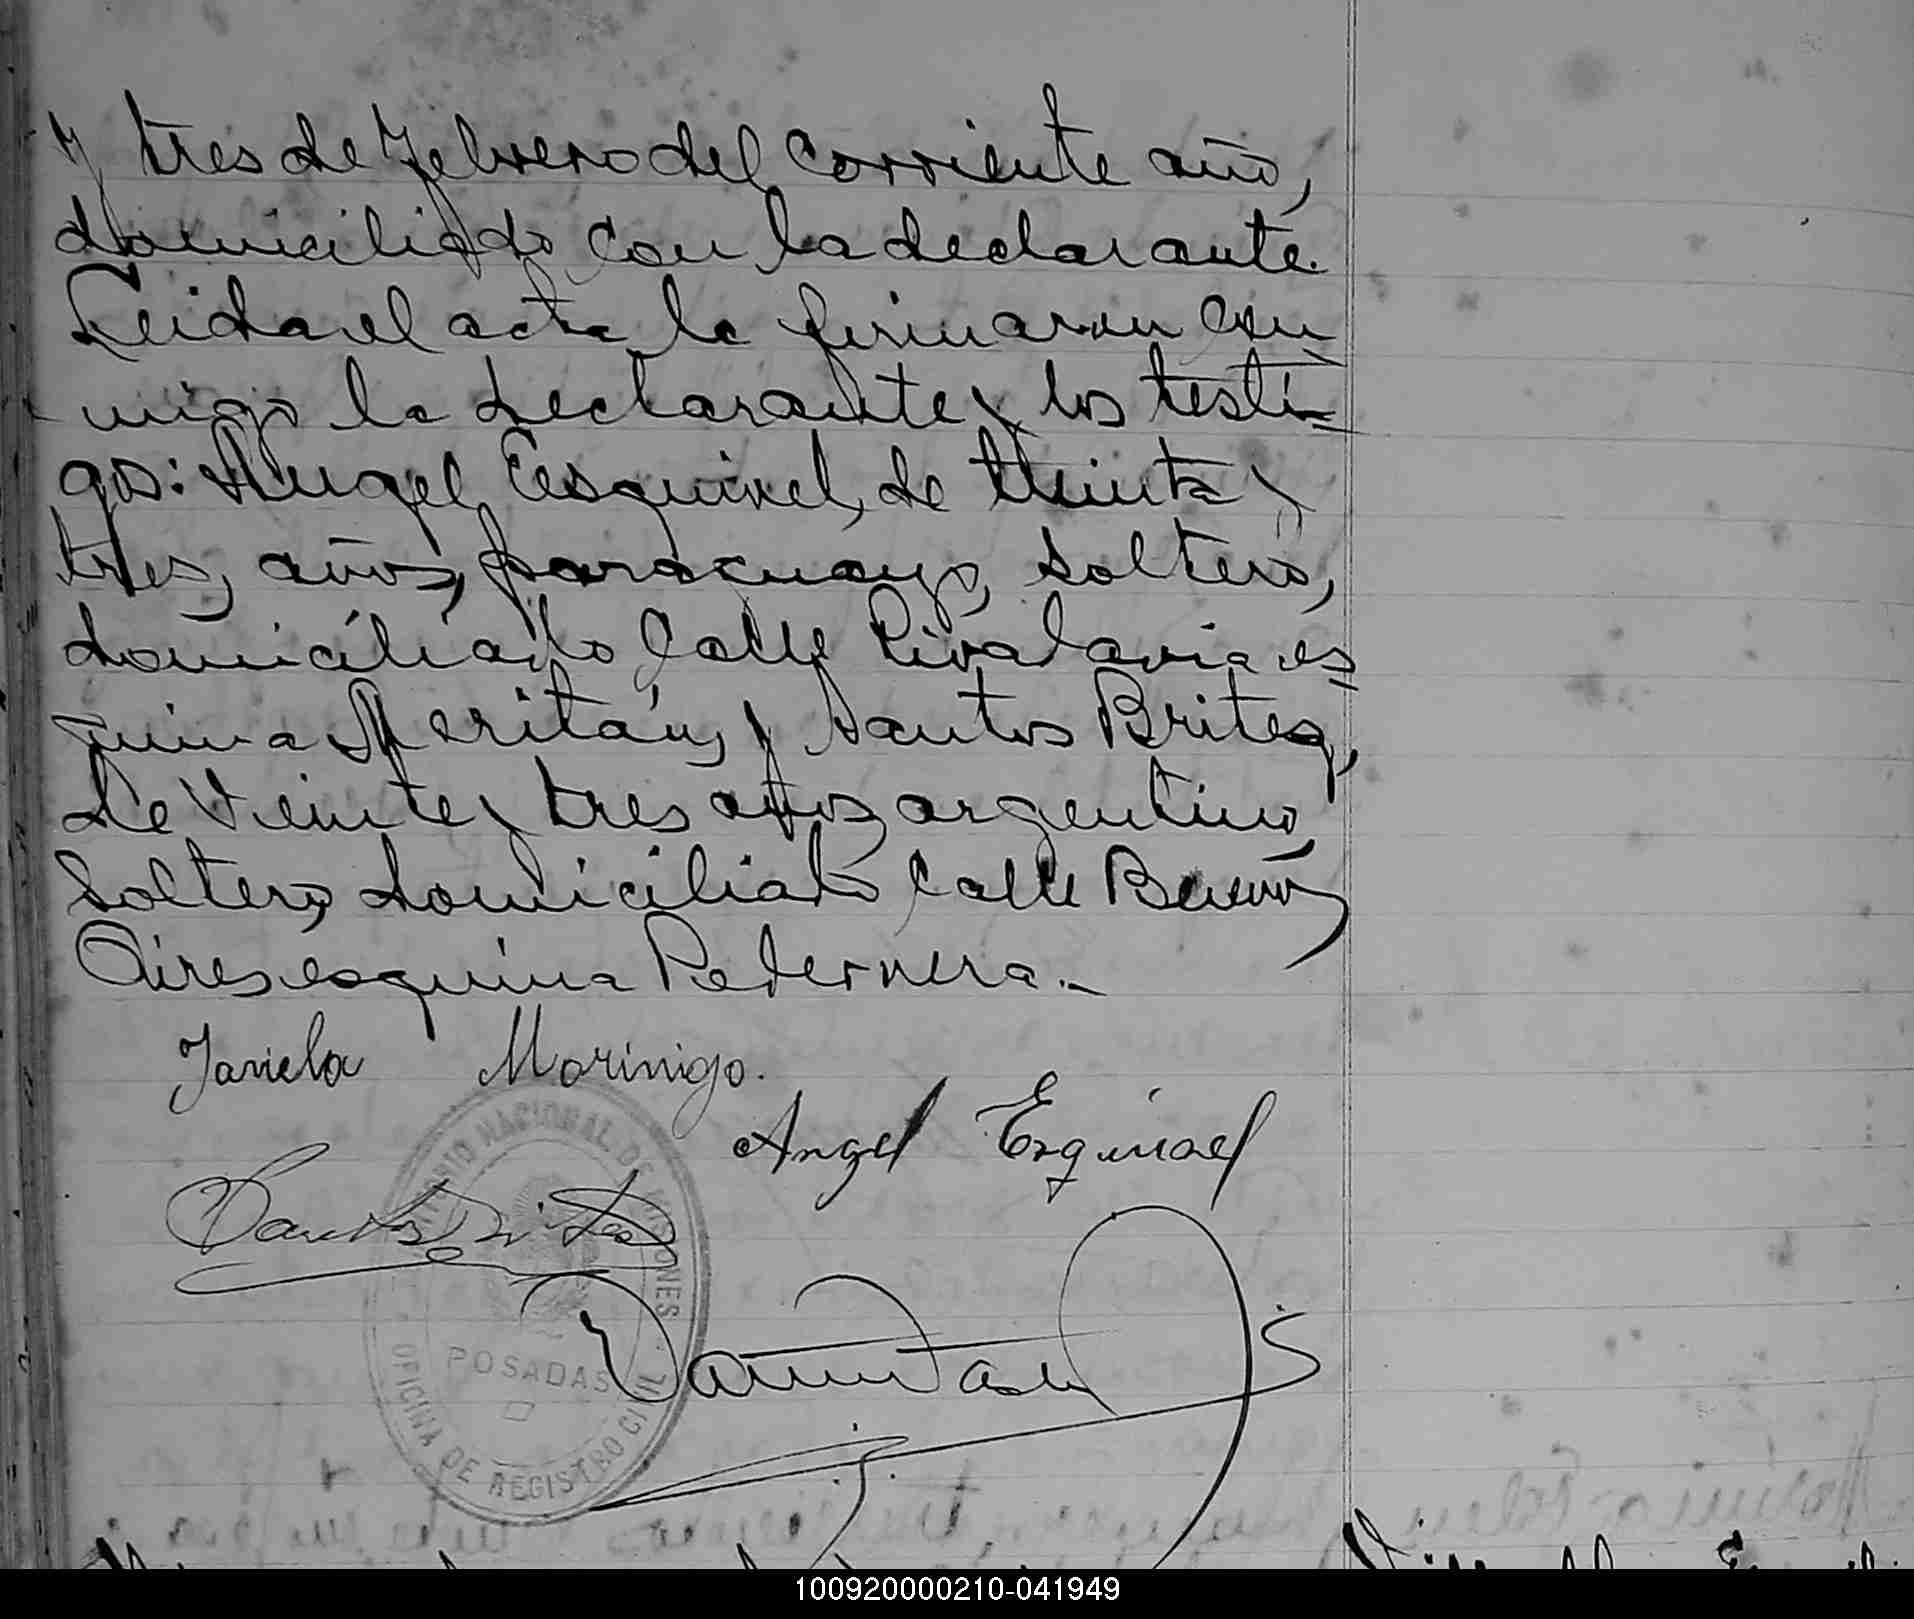 y tres de Febrero del corriente año,
domiciliado con la declarante.
Leida el acta la firmaron con
migo la declarante y los testi=
gos: Angel Esquivel, de treinta y
tres, años, paraguayo, soltero,
domiciliado Calle Rivadavia es=
quina Meritán, y Santos Britez,
de veinte y tres años, argentino,
soltero, domiciliado Calle Buenos
Aires esquina Pedernera.-
Javiela Morinigo.
Angel Ezquivel
Santos Britez
TERRITORIO NACIONAL DE MISIONES
POSADAS
OFICINA DE REGISTRO CIVIL
100920000210-041949